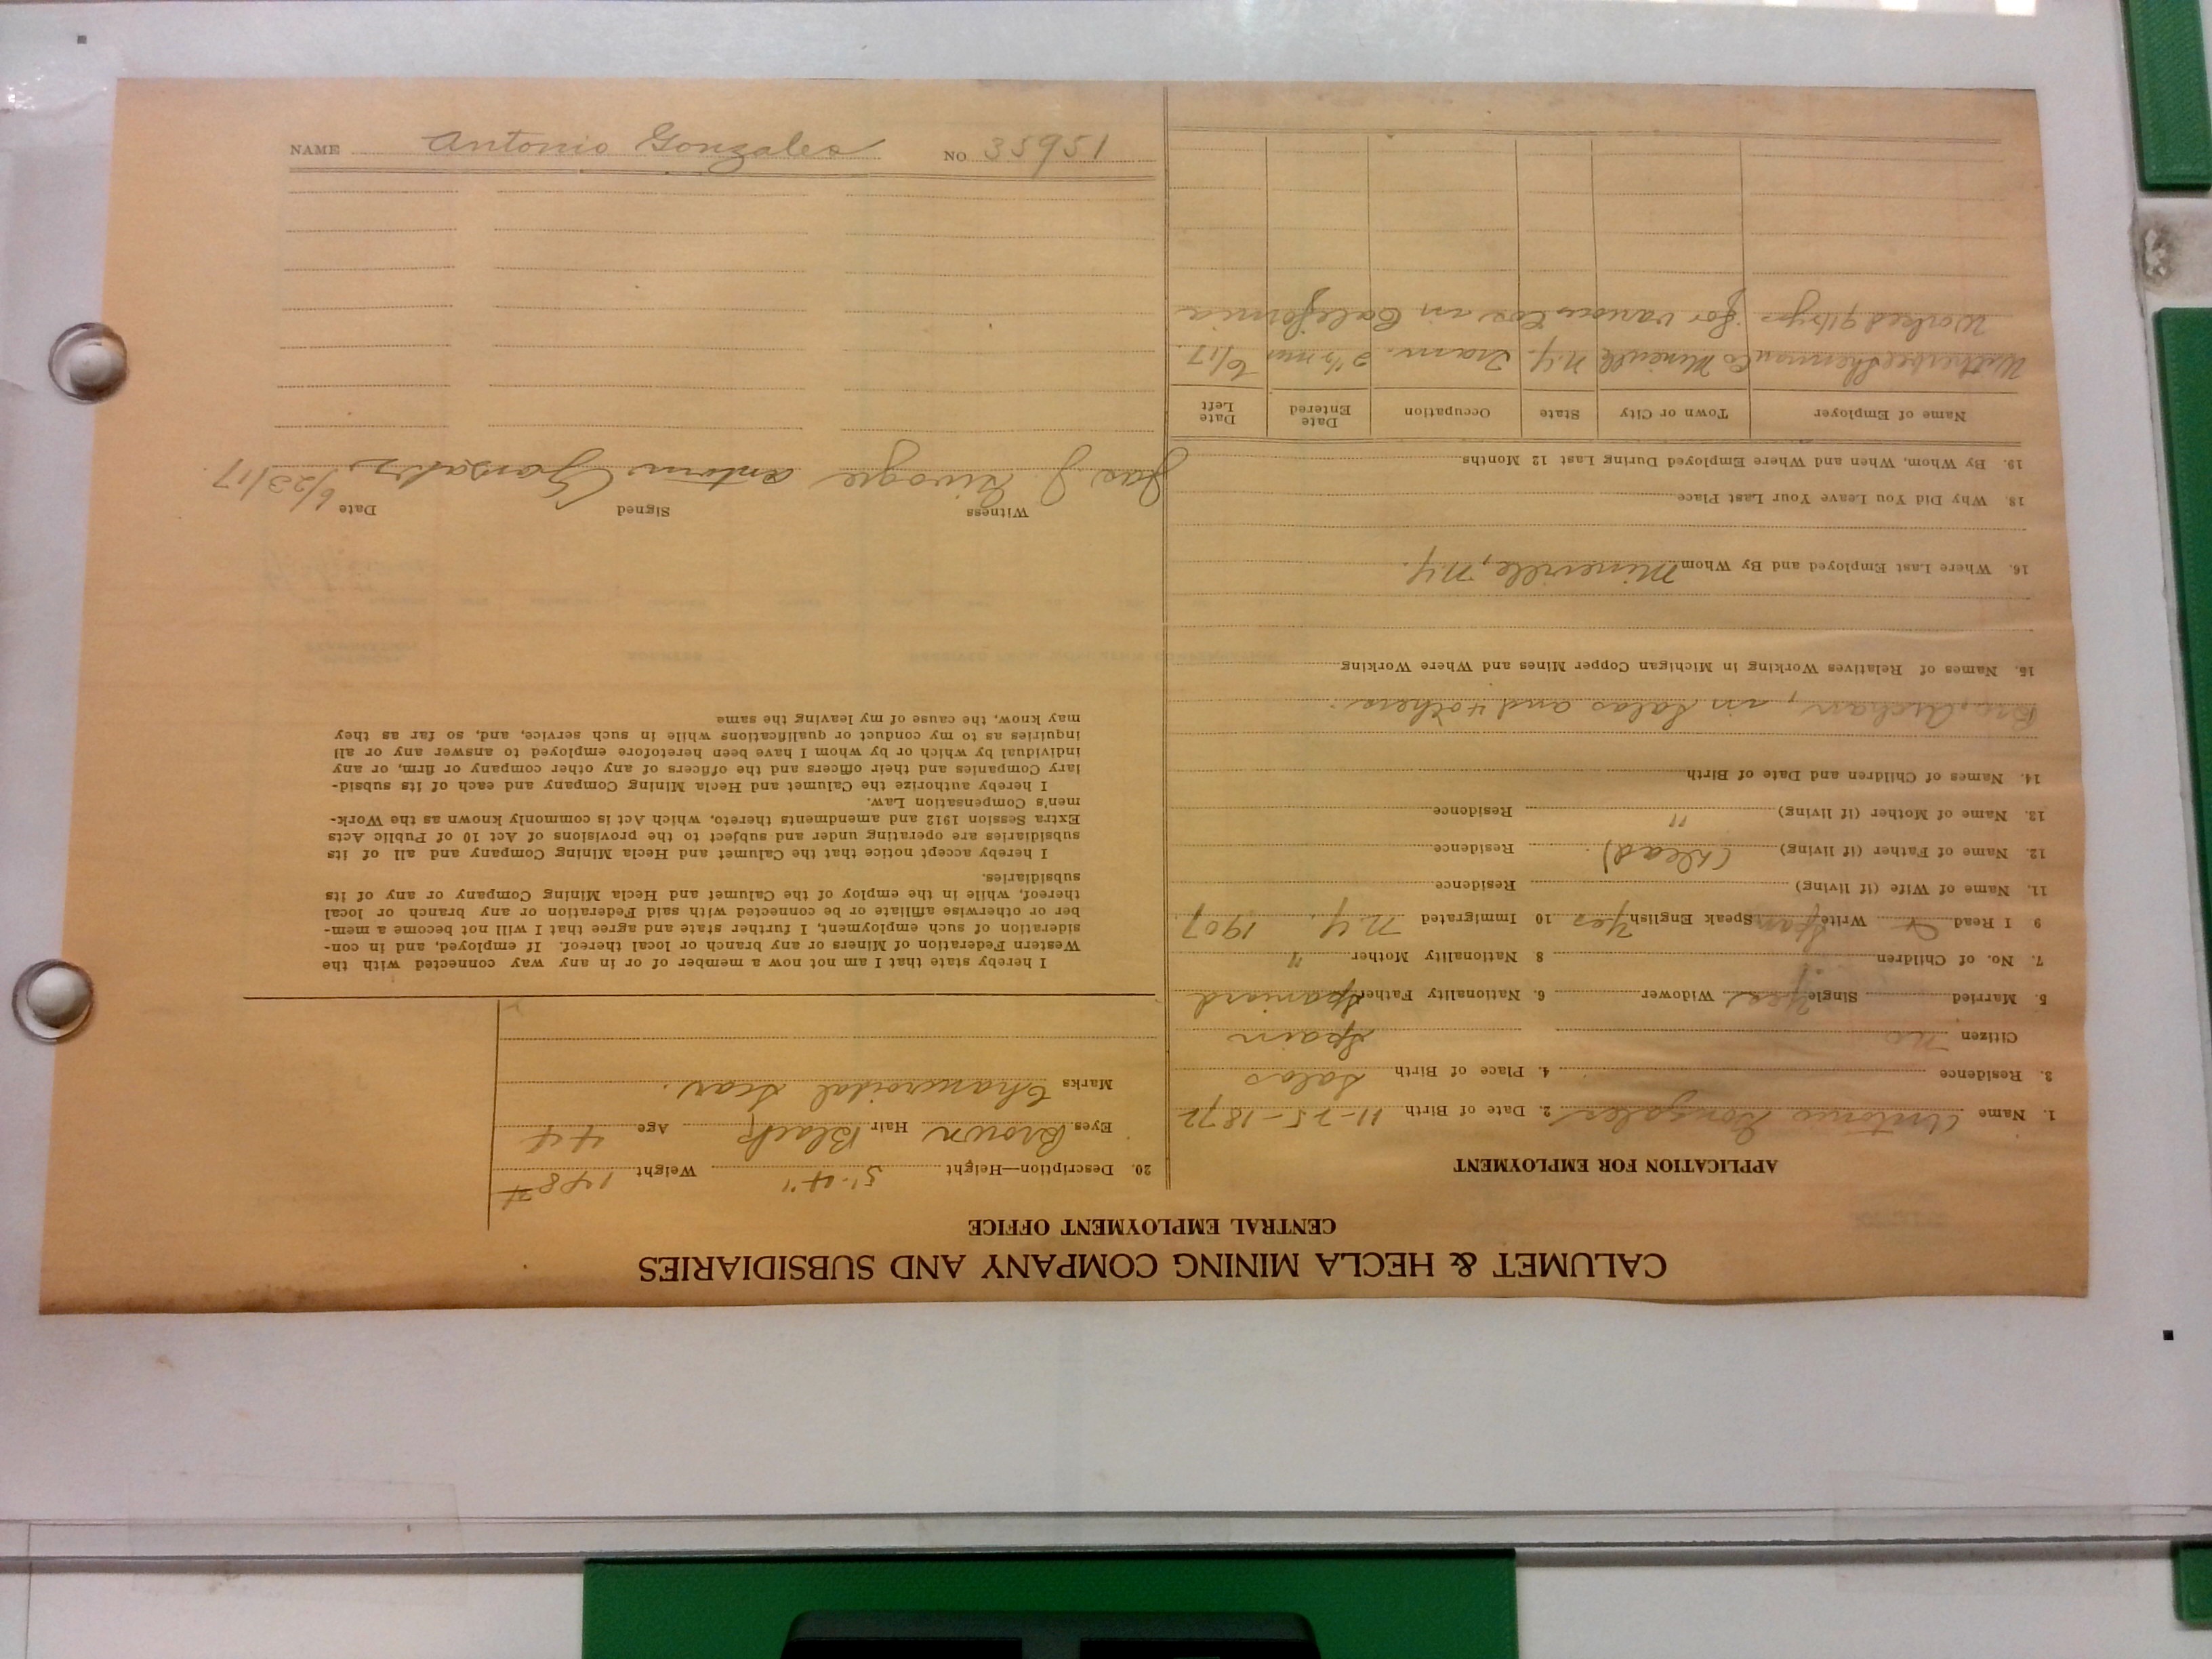 CALUMET & HECLA MINING COMPANY AND SUBSIDIARIES
CENTRAL EMPLOYMENT OFFICE
APPLICATION FOR EMPLOYMENT
1. Name Antonio Gonzales 2. Date of Birth 11-25-1872
3. Residence 4. Place of Birth Salas
Citizen no Spain
5. Married Single Yes Widower 6. Nationality Father Spaniard
7. No. of Children 8 Nationality Mother "
9 I Read & Write Span Speak English Yes 10 Immigrated N.Y. 1907
11. Name of Wife (if living) Residence
12. Name of Father (if living) (Dead) Residence
13. Name of Mother (if living) " Residence
14. Names of Children and Date of Birth
in Salas and 4 others.
15. Names of Relatives Working in Michigan Copper Mines and Where Working
16. Where Last Employed and By Whom Mineville, N.Y.
18. Why Did You Leave Your Last Place
19. By Whom, When and Where Employed During Last 12 Months
Name of Employer Town or City State Occupation Date Entered Date Left
Witherbee Sherman Co Mineville N.Y. Tram. 2½ mos 6/17
Worked 9½ yrs for various Cos in California
20. Description—Height 5'-4" Weight 148#
Eyes Brown Hair Black Age 44
Marks Chancroidal Scar.
I hereby state that I am not now a member of or in any way connected with the
Western Federation of Miners or any branch or local thereof. If employed, and in con-
sideration of such employment, I further state and agree that I will not become a mem-
ber or otherwise affiliate or be connected with said Federation or any branch or local
thereof, while in the employ of the Calumet and Hecla Mining Company or any of its
subsidiaries.
I hereby accept notice that the Calumet and Hecla Mining Company and all of its
subsidiaries are operating under and subject to the provisions of Act 10 of Public Acts
Extra Session 1912 and amendments thereto, which Act is commonly known as the Work-
men's Compensation Law.
I hereby authorize the Calumet and Hecla Mining Company and each of its subsid-
iary Companies and their officers and the officers of any other company or firm, or any
individual by which or by whom I have been heretofore employed to answer any or all
inquiries as to my conduct or qualifications while in such service, and, so far as they
may know, the cause of my leaving the same
Witness Signed Date
Jas. J. Antonio Gonsales 6/23/17
NAME Antonio Gonzales NO 35951